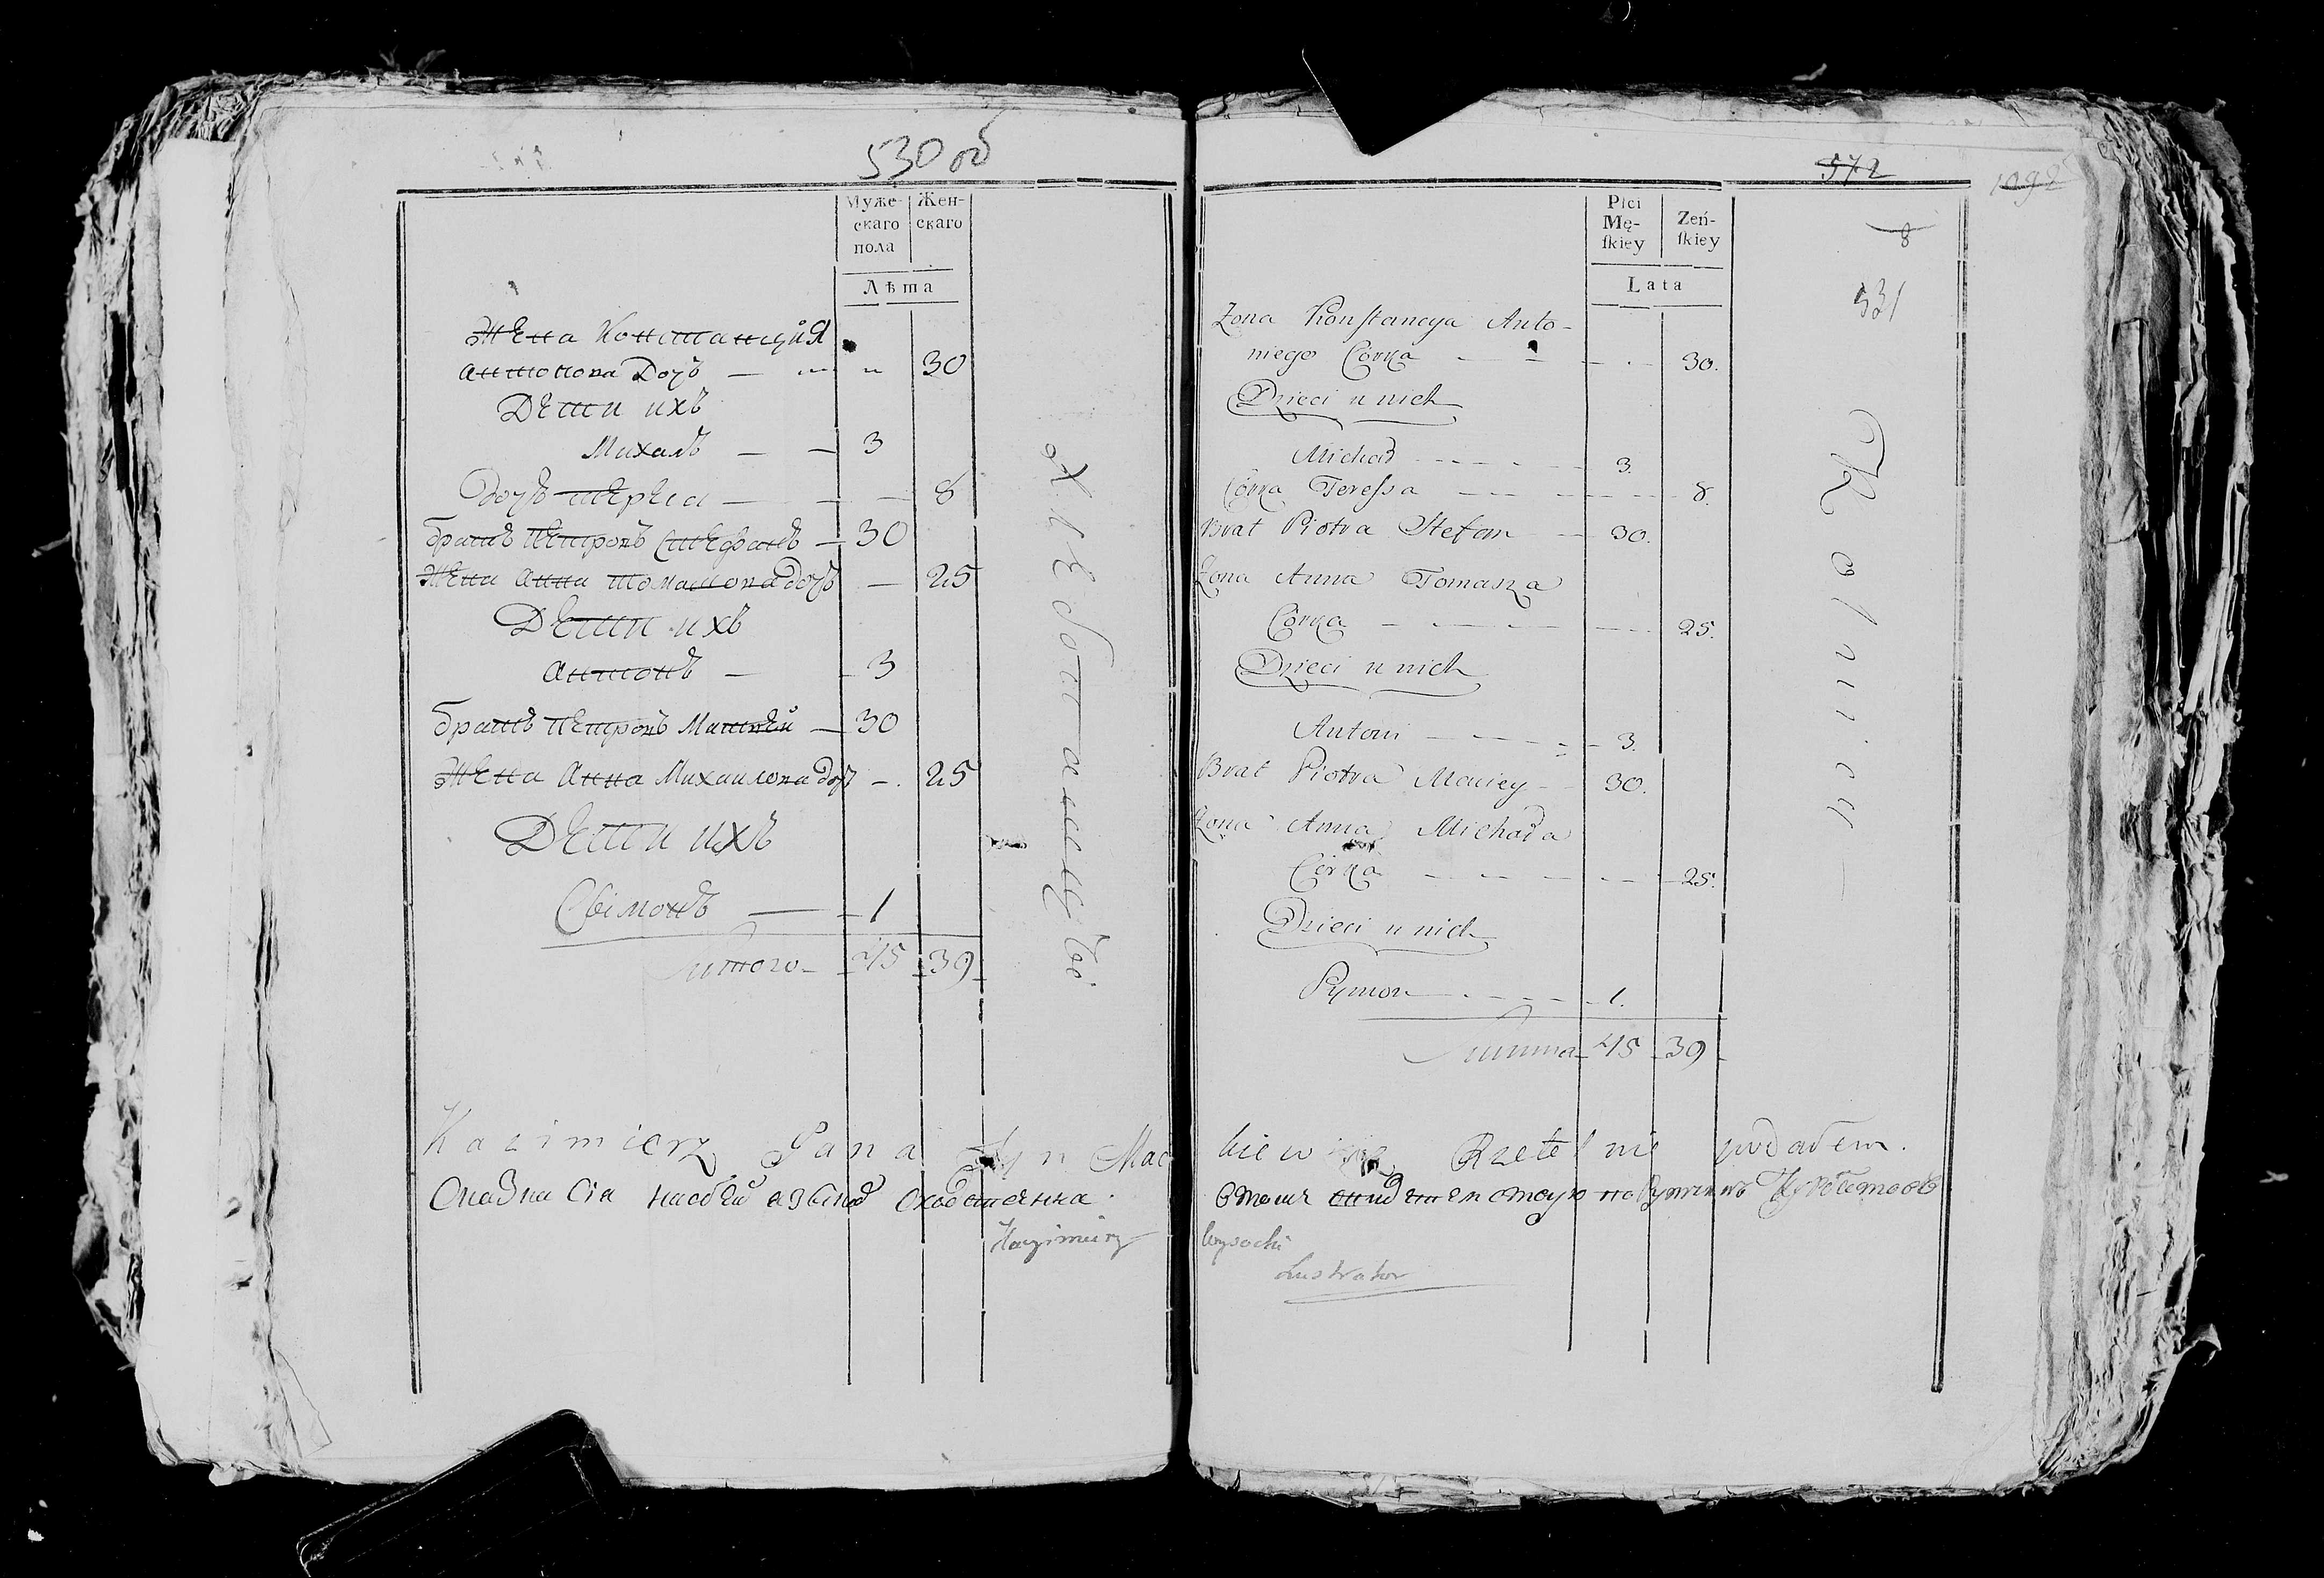 530 об
Муже-
скаго
пола
Жен-
скаго
Лѣта
Жена Констанцыя
Антонова Дочь — — „ 30
Дети ихъ
Михалъ — — 3
Дочь Тереса — — — 8
братъ Петровъ Стефанъ — 30
Жена Анна Томашова дочь — 25
Дети ихъ
Антонъ — — 3
братъ Петровъ Матвей — 30
Жена Анна Михаилова дочь — 25
Дети ихъ
Сымонъ — — 1
Итого — 45 39
572
1092
8
531
Płci
Mę-
ſkiey
Zeń-
ſkiey
Lata
Zona Konstancya Anto-
niego Córka — — — 30.
Dzieci u nich
Michał — — 3.
Córka Teressa — — — 8.
Brat Piotra Stefan — 30.
Zona Anna Tomasza
Córka — — — 25.
Dzieci u nich
Antoni — — 3.
Brat Piotra Maciey — 30.
Zona Anna Michała
Córka — — — 25.
Dzieci u nich
Symon — — 1.
Summa 45 39
Rolnicy
Kazimierz Pana Syn Mackiewicz Rzetelnie podałem.
Kazimierz Wysocki
Lustrator